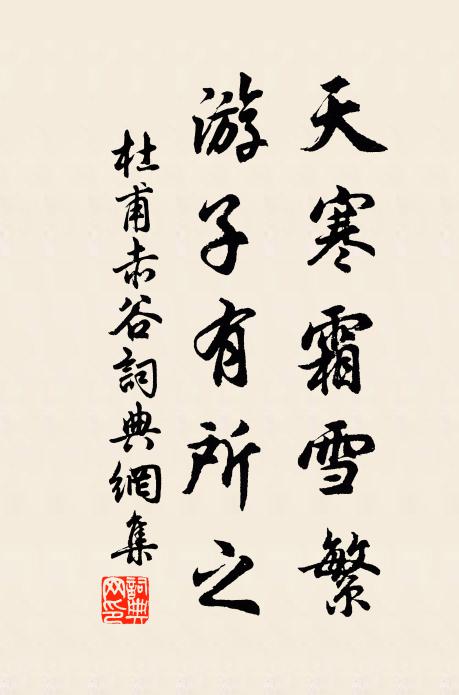 天寒霜雪繁
游子有所之
杜甫赤谷詞典網集
詞典网印